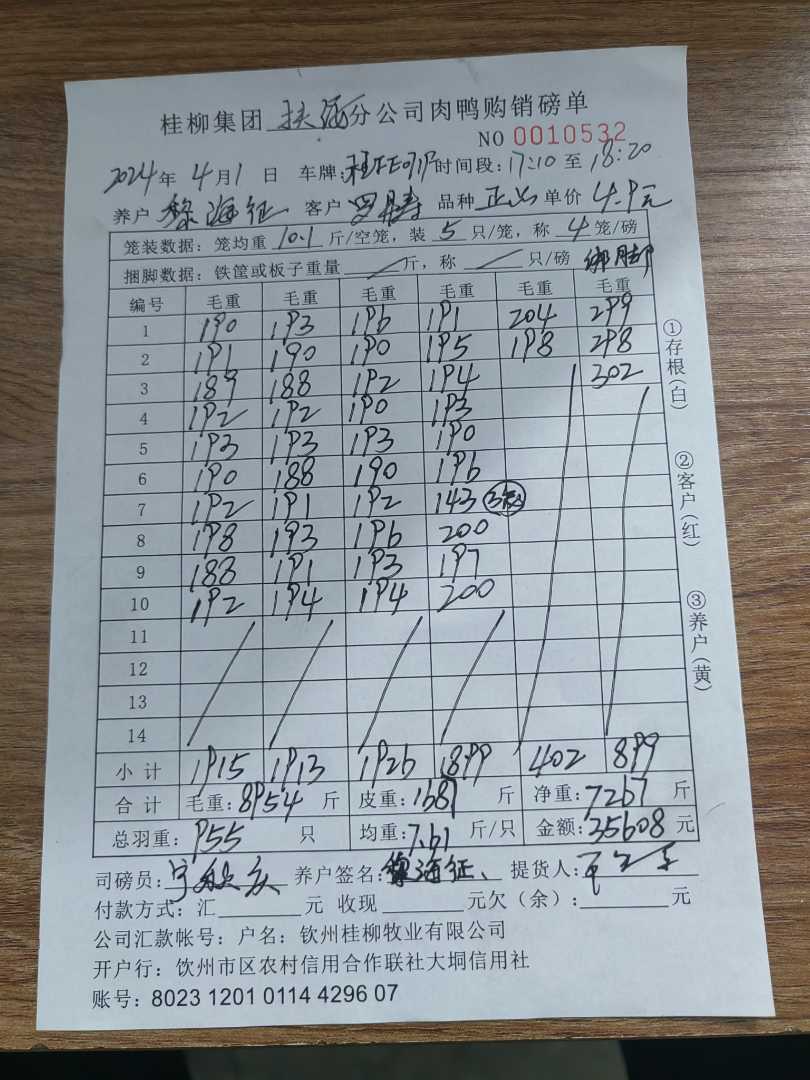 桂柳集团 扶绥 分公司肉鸭购销磅单
NO 0010532
2024 年 4 月 1 日 车牌: 时间段: 17:10 至 18:20
养户 黎海征 客户 品种 单价 4.9元
笼装数据: 笼均重 10.1 斤/空笼, 装 5 只/笼, 称 4 笼/磅
捆脚数据: 铁筐或板子重量 / 斤, 称 / 只/磅 绑脚
编号 毛重 毛重 毛重 毛重 毛重 毛重
1 190 193 196 191 204 299
2 191 190 190 195 198 298
3 189 188 192 194 302
4 192 192 190 193
5 193 193 193 190
6 190 188 190 196
7 192 191 192 143
8 198 193 196 200
9 188 191 193 197
10 192 194 194 200
11
12
13
14
小计 1915 1913 1926 1899 402 899
合计 毛重: 8954 斤 皮重: 1687 斤 净重: 7267 斤
总羽重: 955 只 均重: 7.61 斤/只 金额: 35608 元
司磅员: 养户签名: 黎海征 提货人:
付款方式: 汇 元 收现 元欠(余): 元
公司汇款帐号: 户名: 钦州桂柳牧业有限公司
开户行: 饮州市区农村信用合作联社大垌信用社
账号: 8023 1201 0114 4296 07
①存根(白)
②客户(红)
③养户(黄)